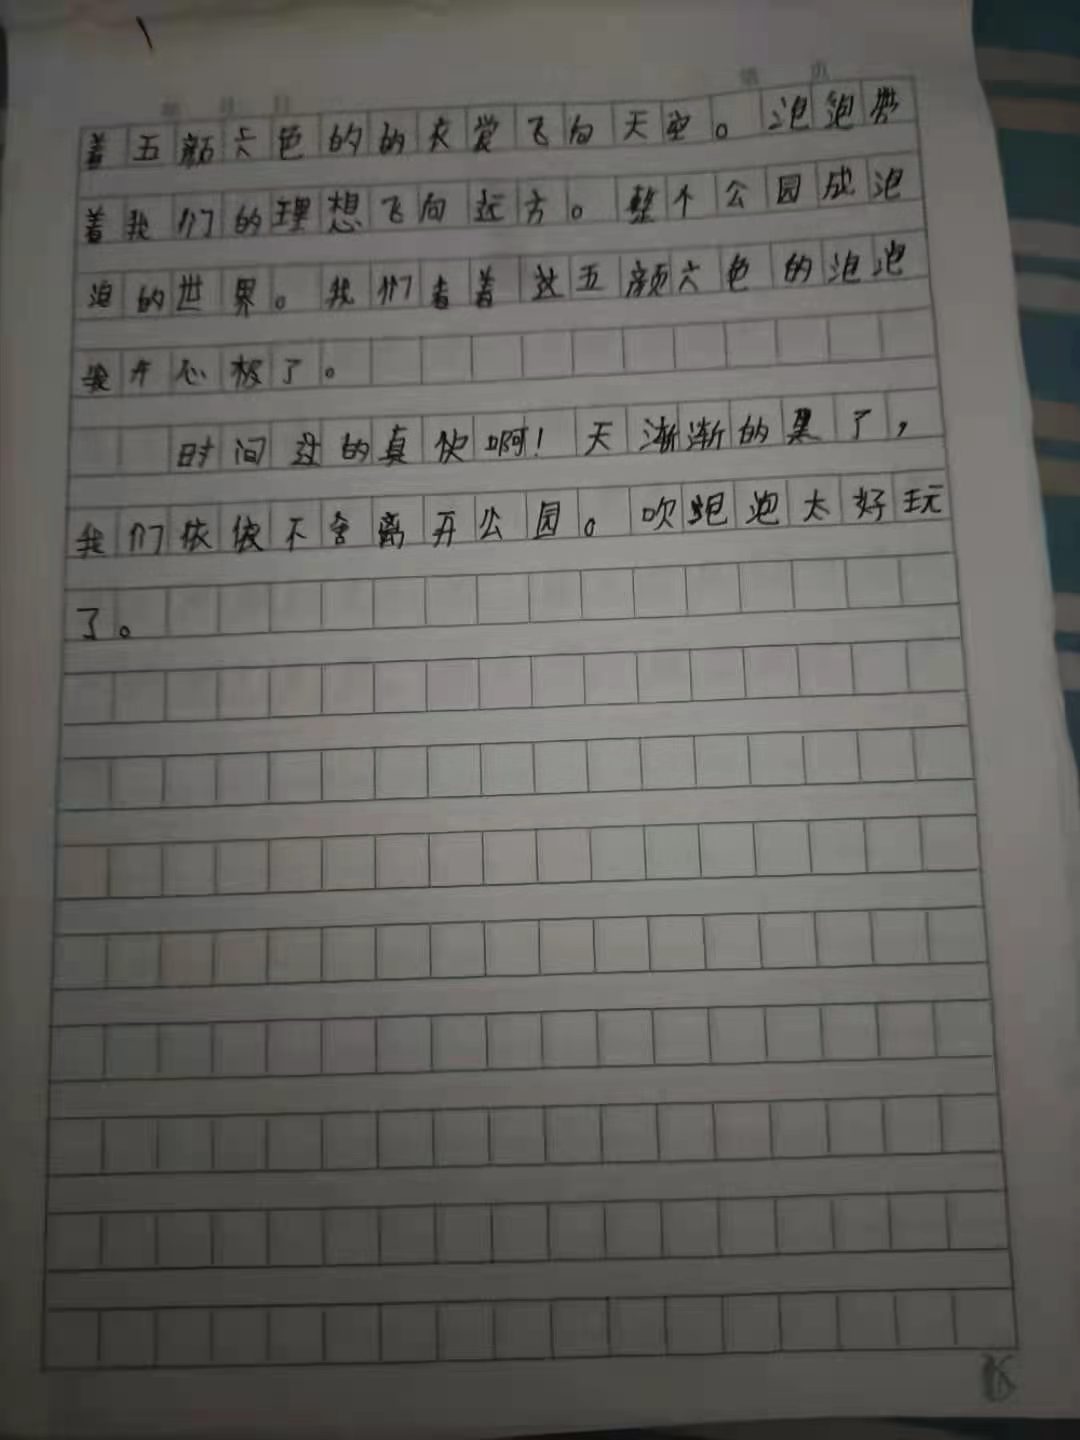 年 月 日 第 页
着五颜六色的的衣裳飞向天空。泡泡带
着我们的理想飞向远方。整个公园成泡
泡的世界。我们看着这五颜六色的泡泡
开心极了。
时间过的真快啊!天渐渐的黑了,
我们依依不舍离开公园。吹泡泡太好玩
了。